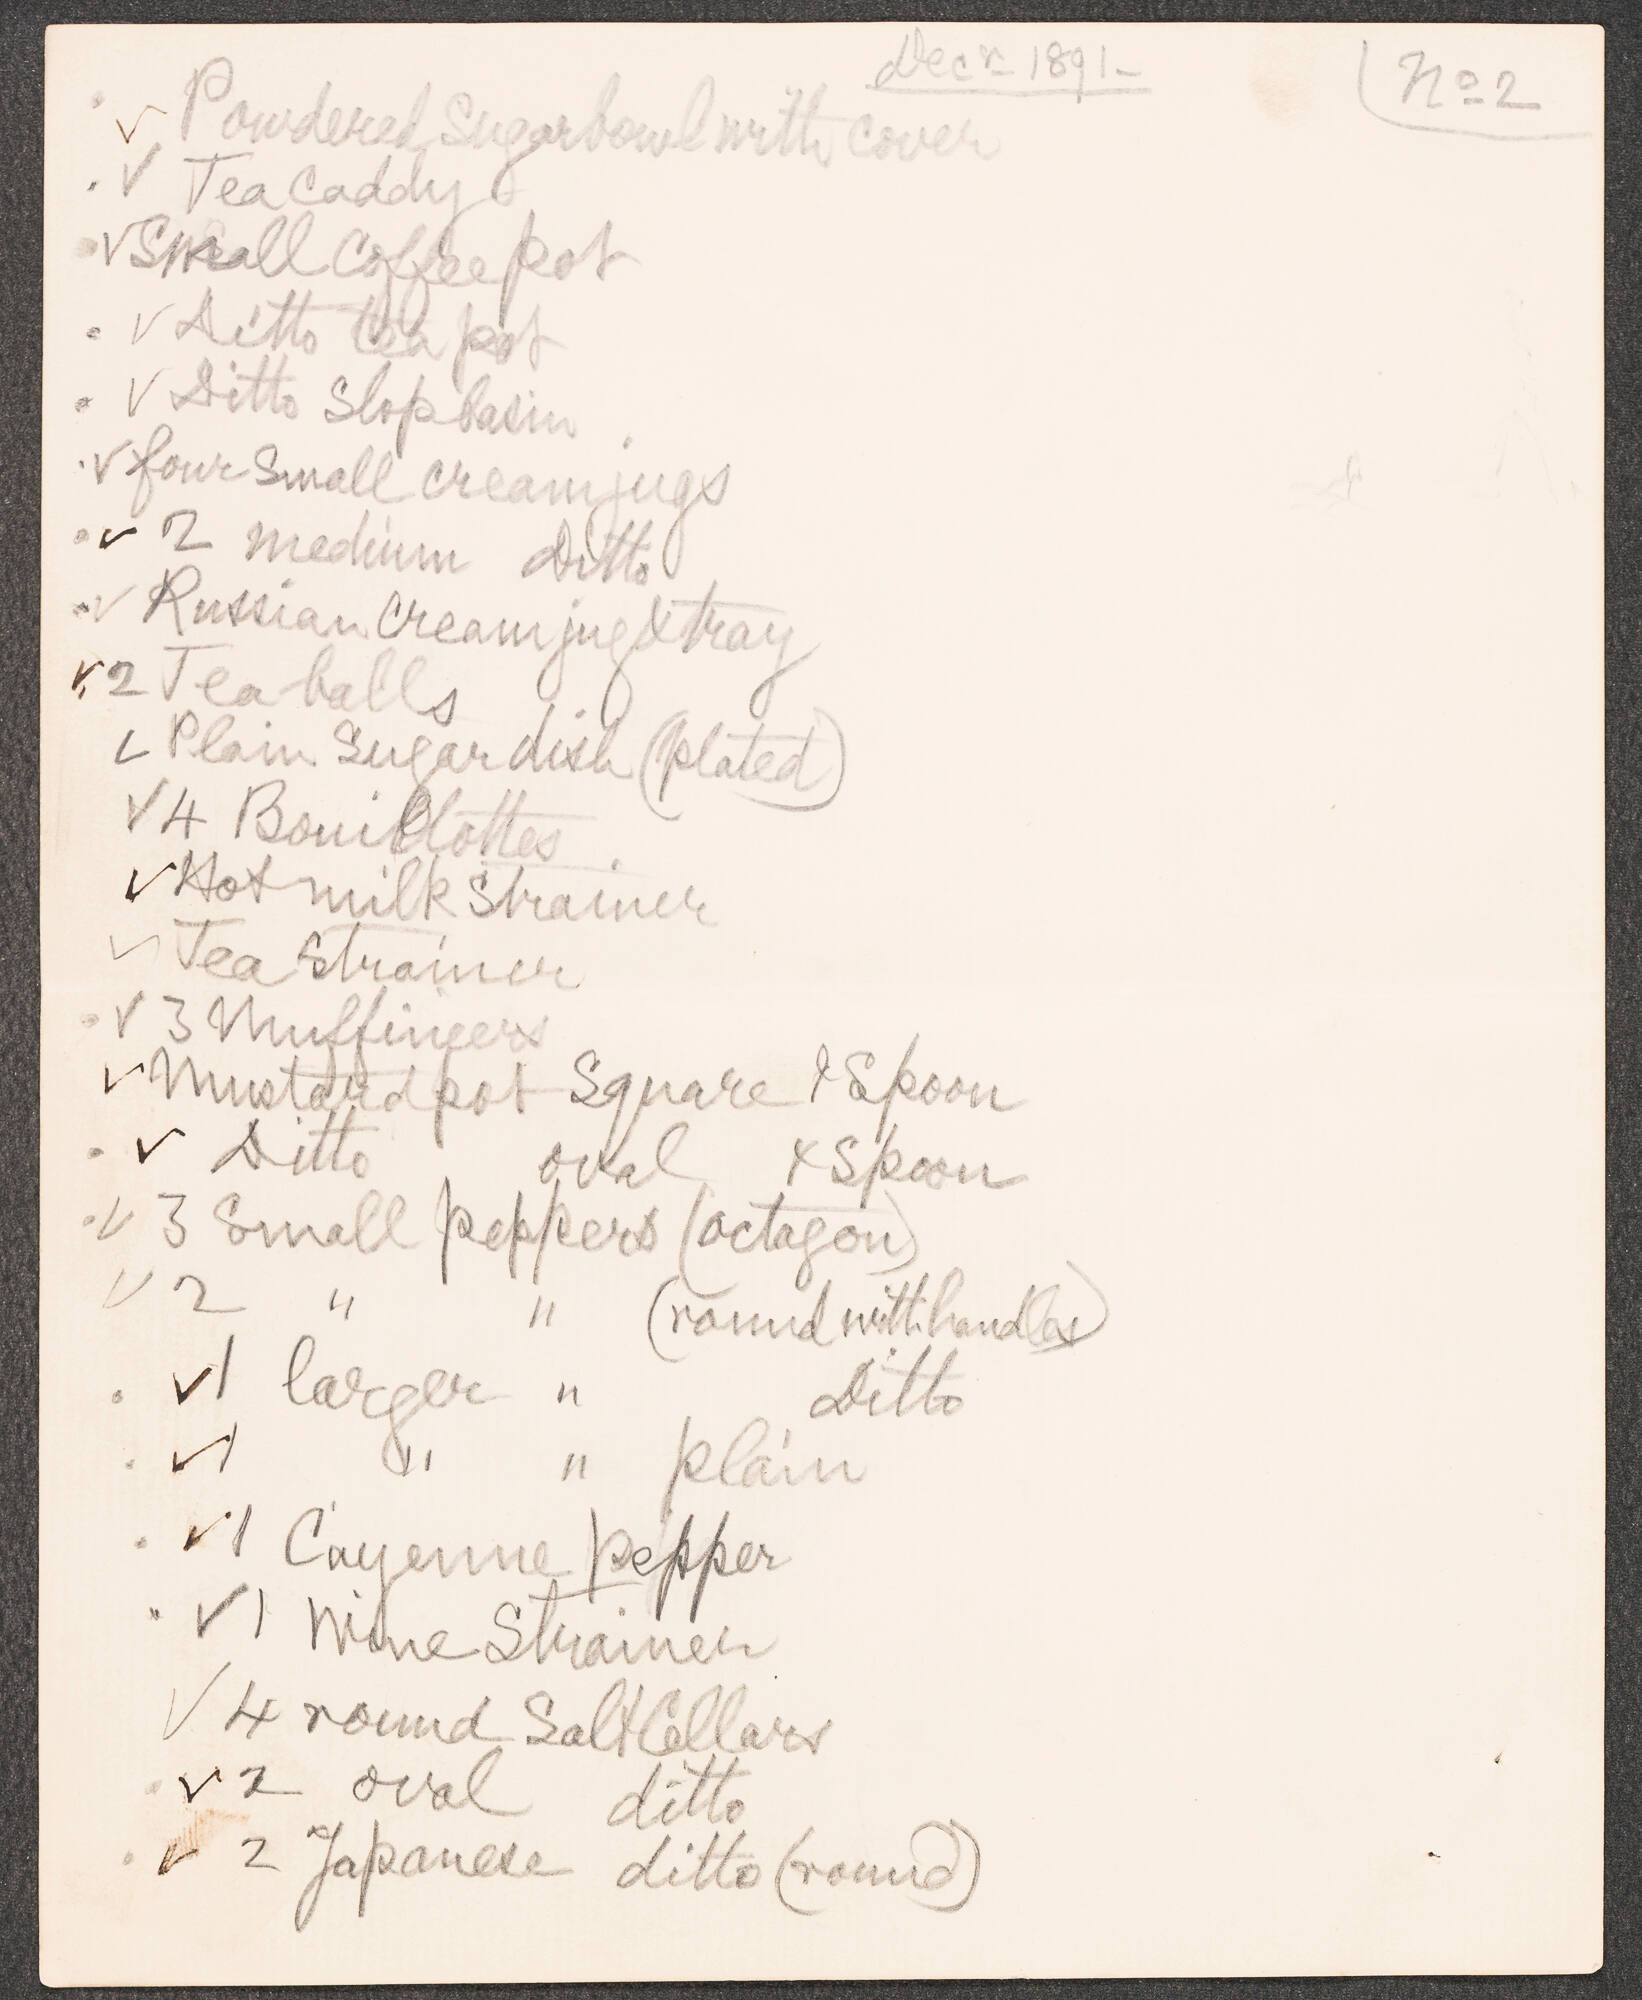 Decr 1891–
No 2
✓ Powdered Sugarbowl with cover
✓ Tea Caddy
✓ Small Coffee pot
✓ Ditto tea pot
✓ Ditto Slop basin.
✓ four Small cream jugs
✓ 2 medium Ditto
✓ Russian cream jug & tray
✓ 2 Tea balls
✓ Plain Sugar dish (plated)
✓ 4 Bouillottes.
✓ Hot milk Strainer
✓ Tea Strainer
✓ 3 Muffineers
✓ Mustard pot Square & Spoon
✓ Ditto oval & Spoon
✓ 3 Small peppers (octagon)
✓ 2 " " (round with handles)
✓ 1 larger " Ditto
✓ 1 " " plain
✓ 1 Cayenne pepper
✓ 1 Wine Strainer
✓ 4 round Salt Cellars
✓ 2 oval ditto
✓ 2 Japanese ditto (round)